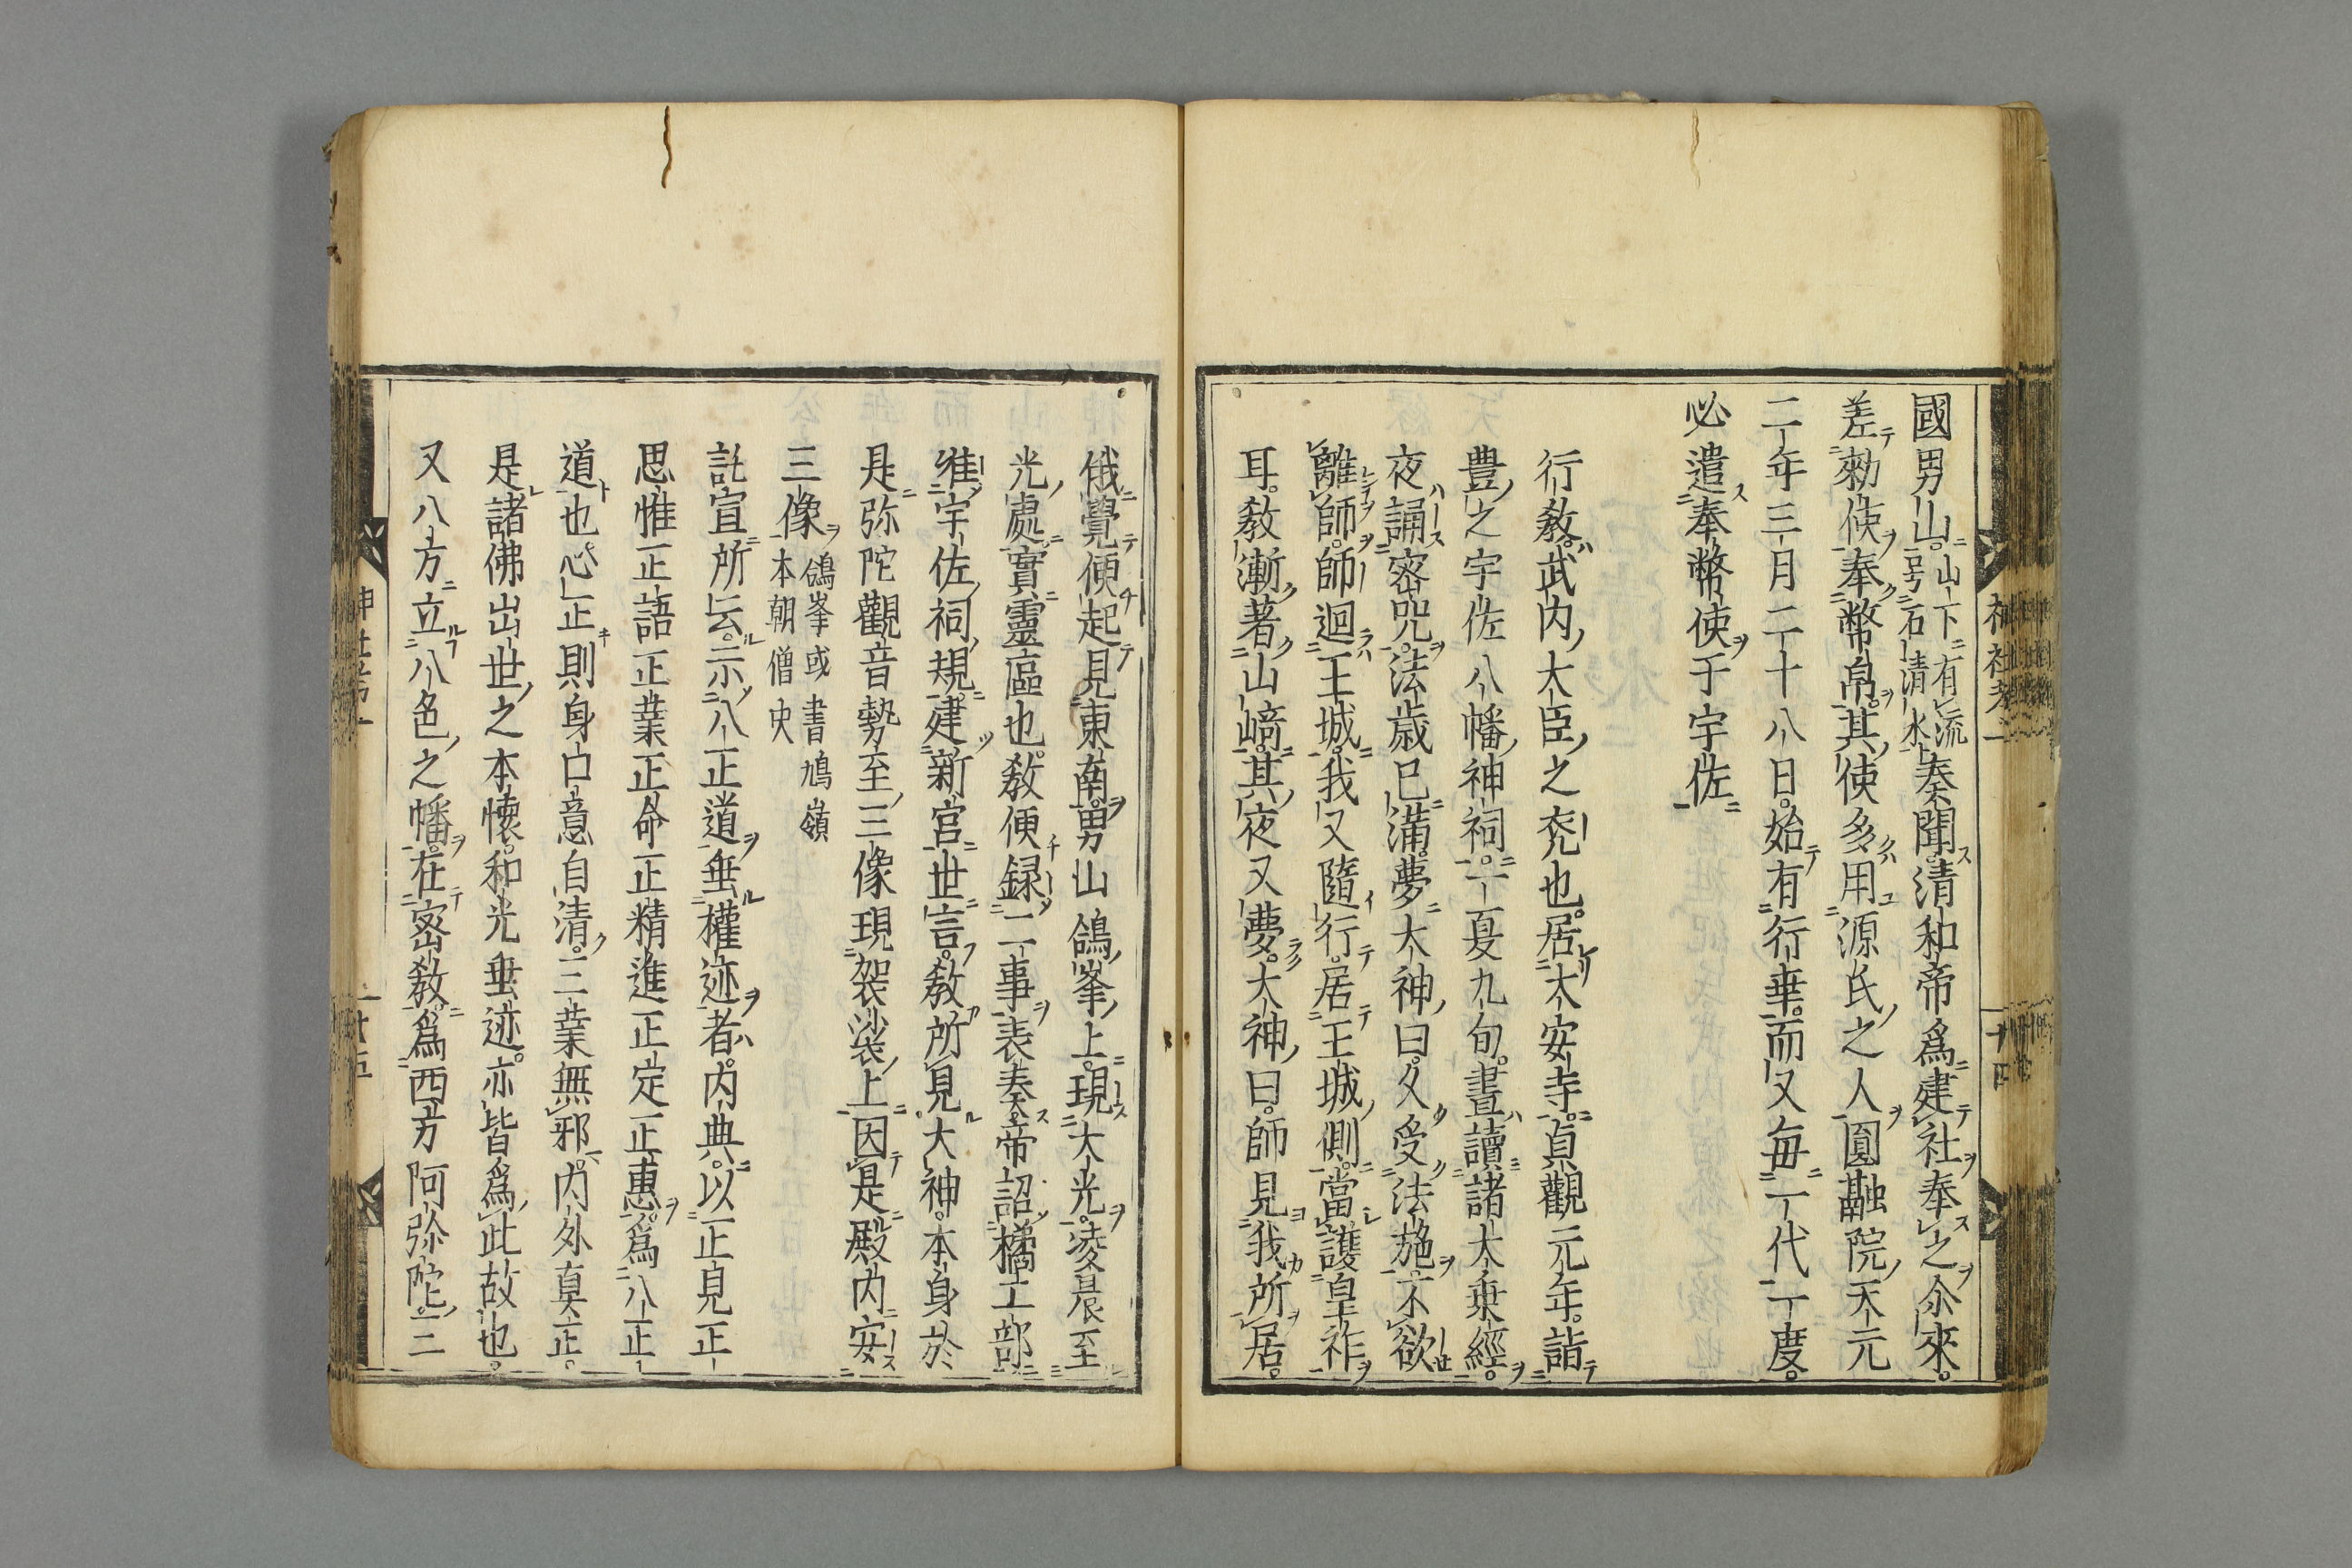 國男山。山下有流
号石清水
奏聞。清和帝爲建社奉之尒來。
差勅使奉幣帛。其使多用源氏之人圓融院天元
二年三月二十八日。始有行幸。而又毎一代一度。
必遣奉幣使于宇佐
行敎。武内大臣之兖也。居大安寺。貞觀元年。詣
豊之宇佐八幡神祠。一夏九旬。晝讀諸大乗經。
夜誦宻咒。法歳已滿。夢大神曰。久受法施。不欲
離師。師迴王城。我又隨行。居王城側。當護皇祚
耳。敎漸著山﨑。其夜又夢。大神曰。師見我所居。
俄覺便起見東南。男山鴿峯上。現大光。凌晨至
光處。實靈區也。敎便録二事表奏。帝詔橘工部。
准宇佐祠規。建新宮。世言。敎所見大神。本身於
是弥陀觀音勢至三像現袈裟上因是殿内安
三像
鴿峯或書鳩嶺
本朝僧史
託宣所云。示八正道。垂權迹者。内典。以正見正
思惟正語正業正命正精進正定正惠。爲八正
道也。心正則身口意自清。三業無邪。内外真正。
是諸佛出世之本懐。和光垂迹。亦皆爲此故也。
又八方立八色之幡。在宻敎。爲西方阿弥陀。三
神社考一
十四